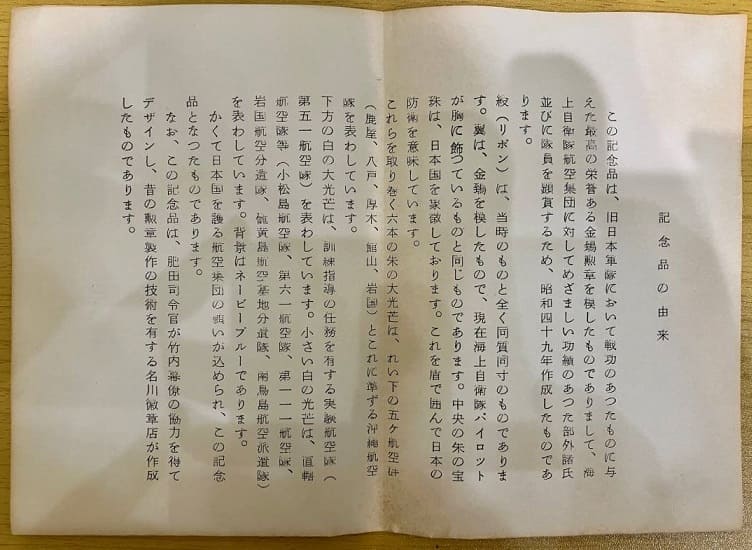 記念品の由来
この記念品は、旧日本軍隊において戦功のあつたものに与
えた最高の栄誉ある金鵄勲章を模したものでありまして、海
上自衛隊航空集団に対してめざましい功績のあつた部外諸氏
並びに隊員を顕賞するため、昭和四十九年作成したものであ
ります。
綬(リボン)は、当時のものと全く同質同寸のものでありま
す。翼は、金鵄を模したもので、現在海上自衛隊パイロット
が胸に飾つているものと同じものであります。中央の朱の宝
珠は、日本国を象徴しております。これを盾で囲んで日本の
防衛を意味しています。
これらを取り巻く六本の朱の大光芒は、れい下の五ケ航空群
(鹿屋、八戸、厚木、館山、岩国)とこれに準ずる沖縄航空
隊を表わしています。
下方の白の大光芒は、訓練指導の任務を有する実験航空隊(
第五一航空隊)を表わしています。小さい白の光芒は、直轄
航空隊等(小松島航空隊、第六一航空隊、第一一一航空隊、
岩国航空分遣隊、硫黄島航空基地分遣隊、南鳥島航空派遣隊)
を表わしています。背景はネービーブルーであります。
かくて日本国を護る航空集団の願いが込められ、この記念
品となつたものであります。
なお、この記念品は、肥田司令官が竹内幕僚の協力を得て
デザインし、昔の勲章製作の技術を有する名川徽章店が作成
したものであります。